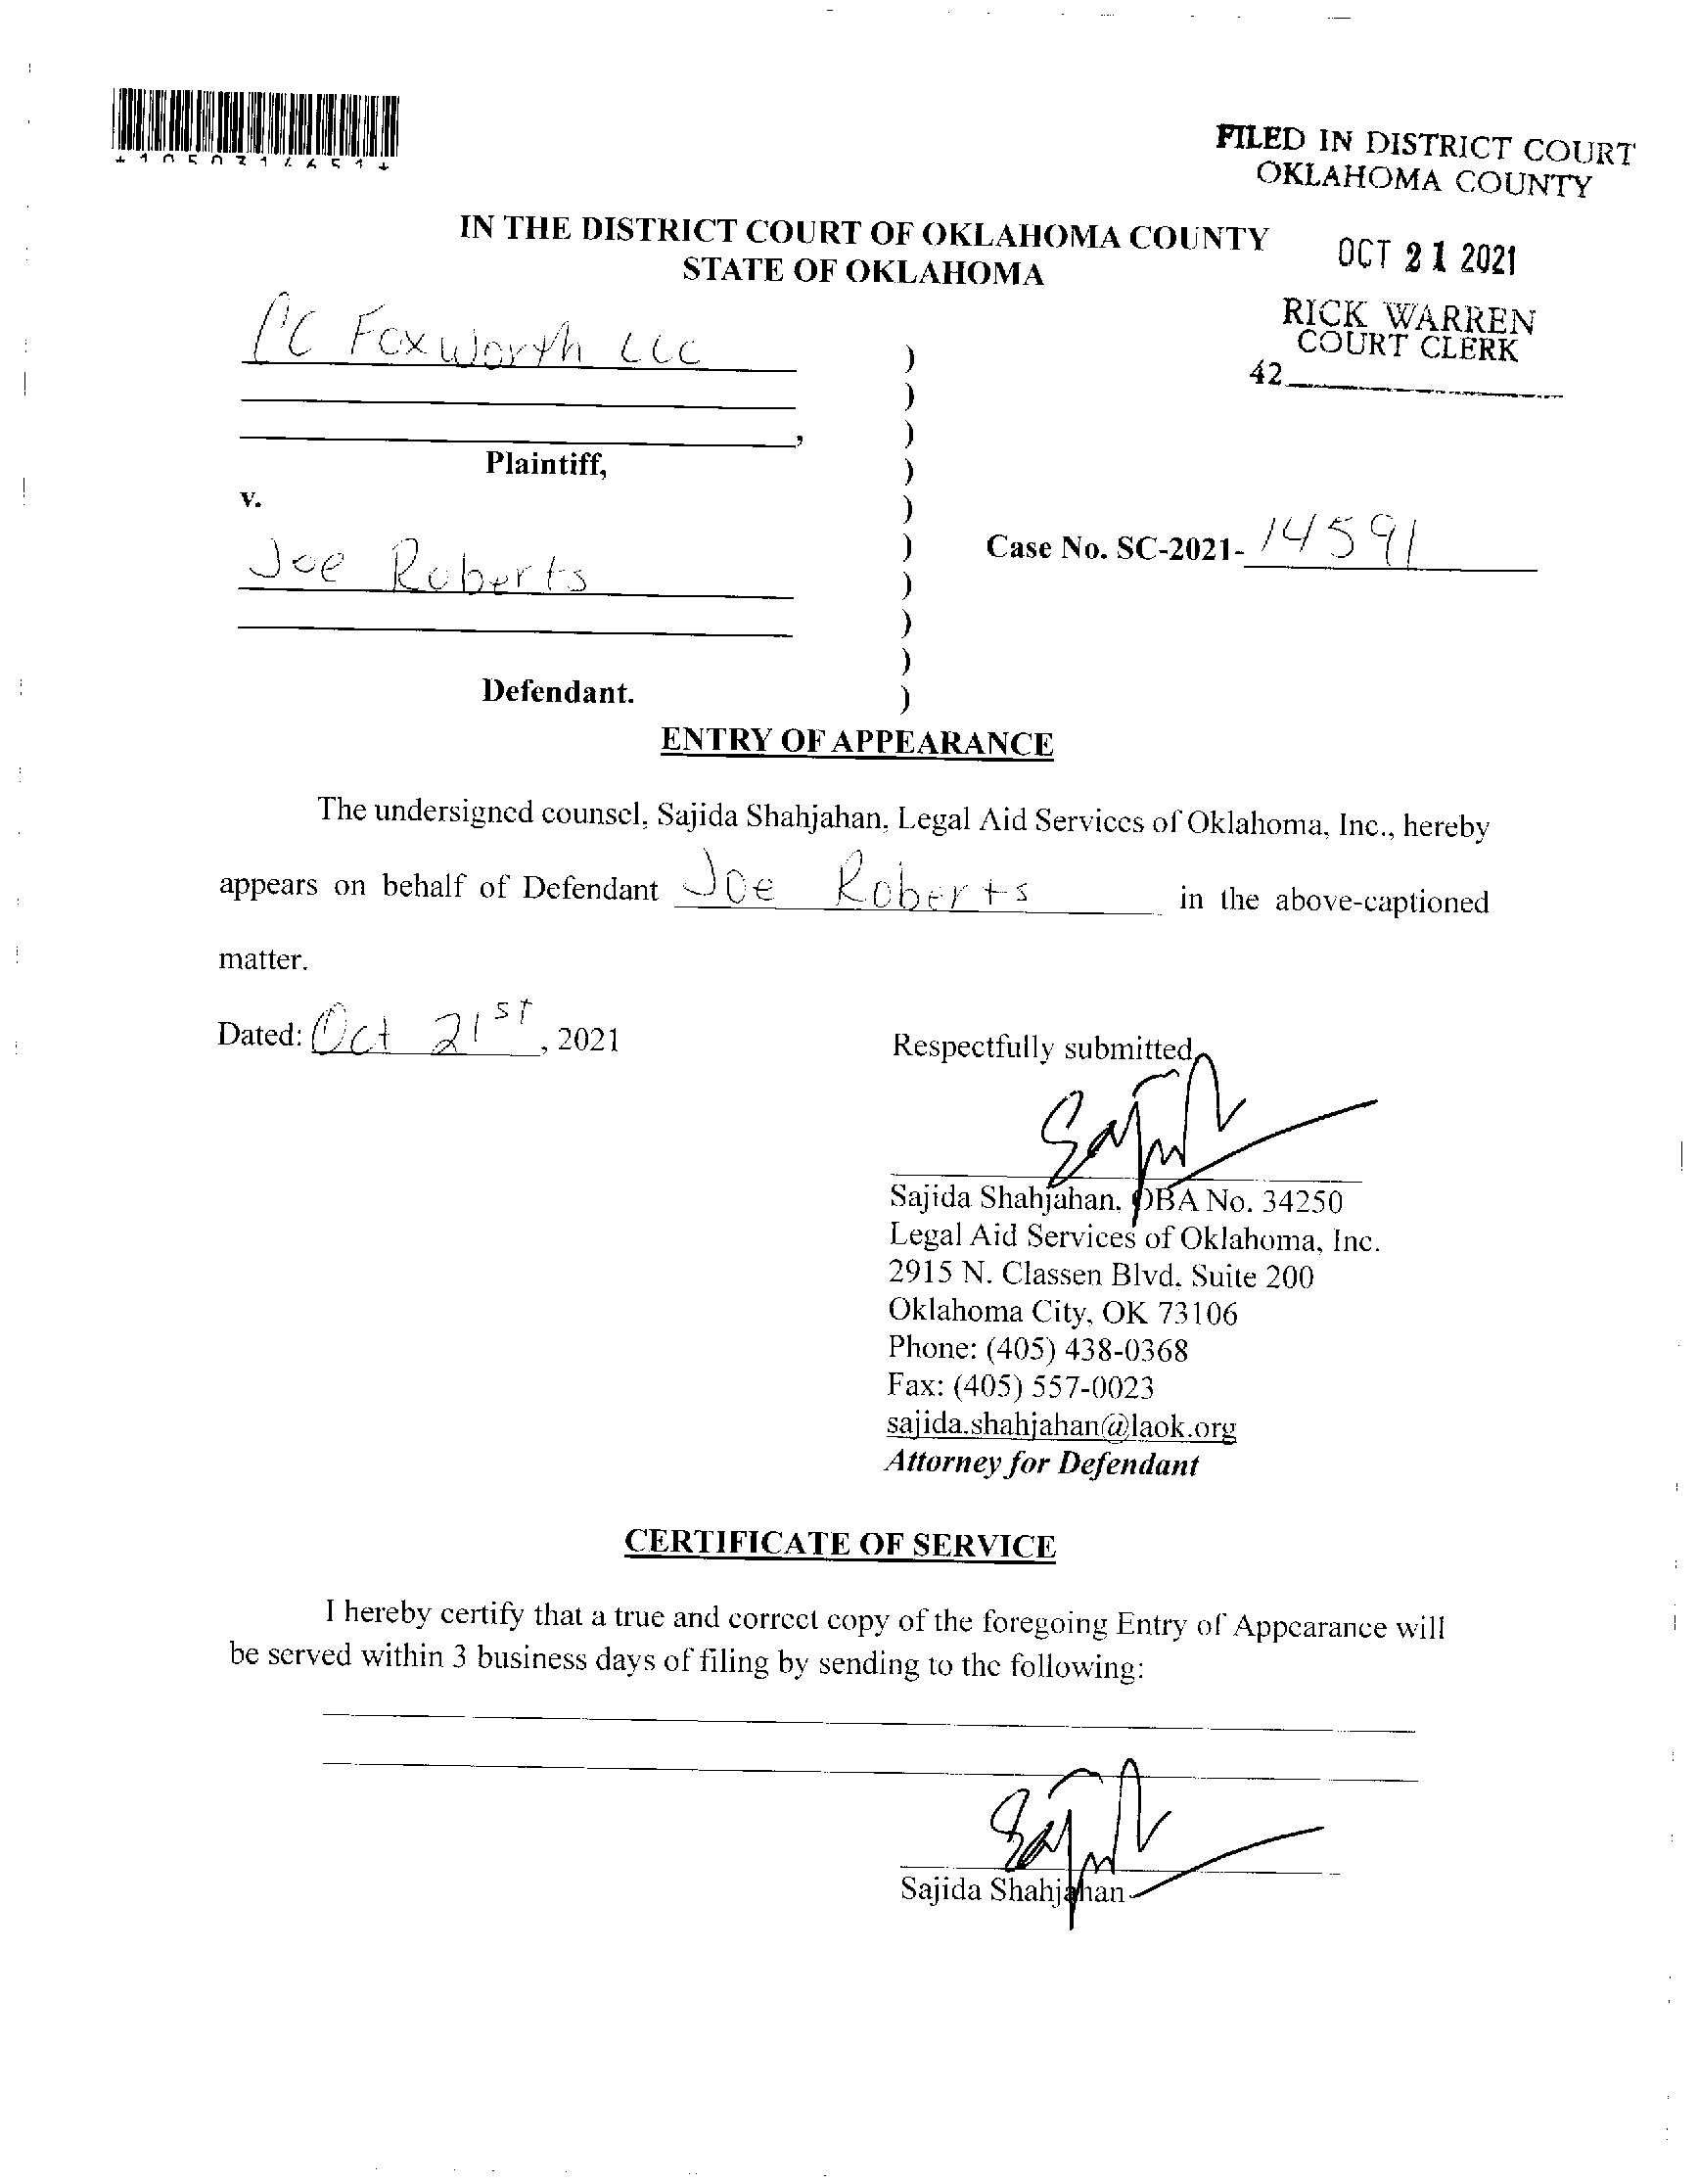 FILED IN DISTRICT COURT
OKLAHOMA COUNTY
IN THE DISTRICT COURT OF OKLAHOMA COUNTY
STATE OF OKLAHOMA
OCT 21 2021
RICK WARREN
COURT CLERK
42
PC Foxworth LLC
Plaintiff,
v.
Joe Roberts
Case No. SC-2021- 14591
Defendant.
ENTRY OF APPEARANCE
The undersigned counsel, Sajida Shahjahan, Legal Aid Services of Oklahoma, Inc., hereby
appears on behalf of Defendant Joe Roberts in the above-captioned
matter.
Dated: Oct 21st, 2021
Respectfully submitted,
Sajida Shahjahan, OBA No. 34250
Legal Aid Services of Oklahoma, Inc.
2915 N. Classen Blvd, Suite 200
Oklahoma City, OK 73106
Phone: (405) 438-0368
Fax: (405) 557-0023
sajida.shahjahan@laok.org
Attorney for Defendant
CERTIFICATE OF SERVICE
I hereby certify that a true and correct copy of the foregoing Entry of Appearance will
be served within 3 business days of filing by sending to the following:
Sajida Shahjahan